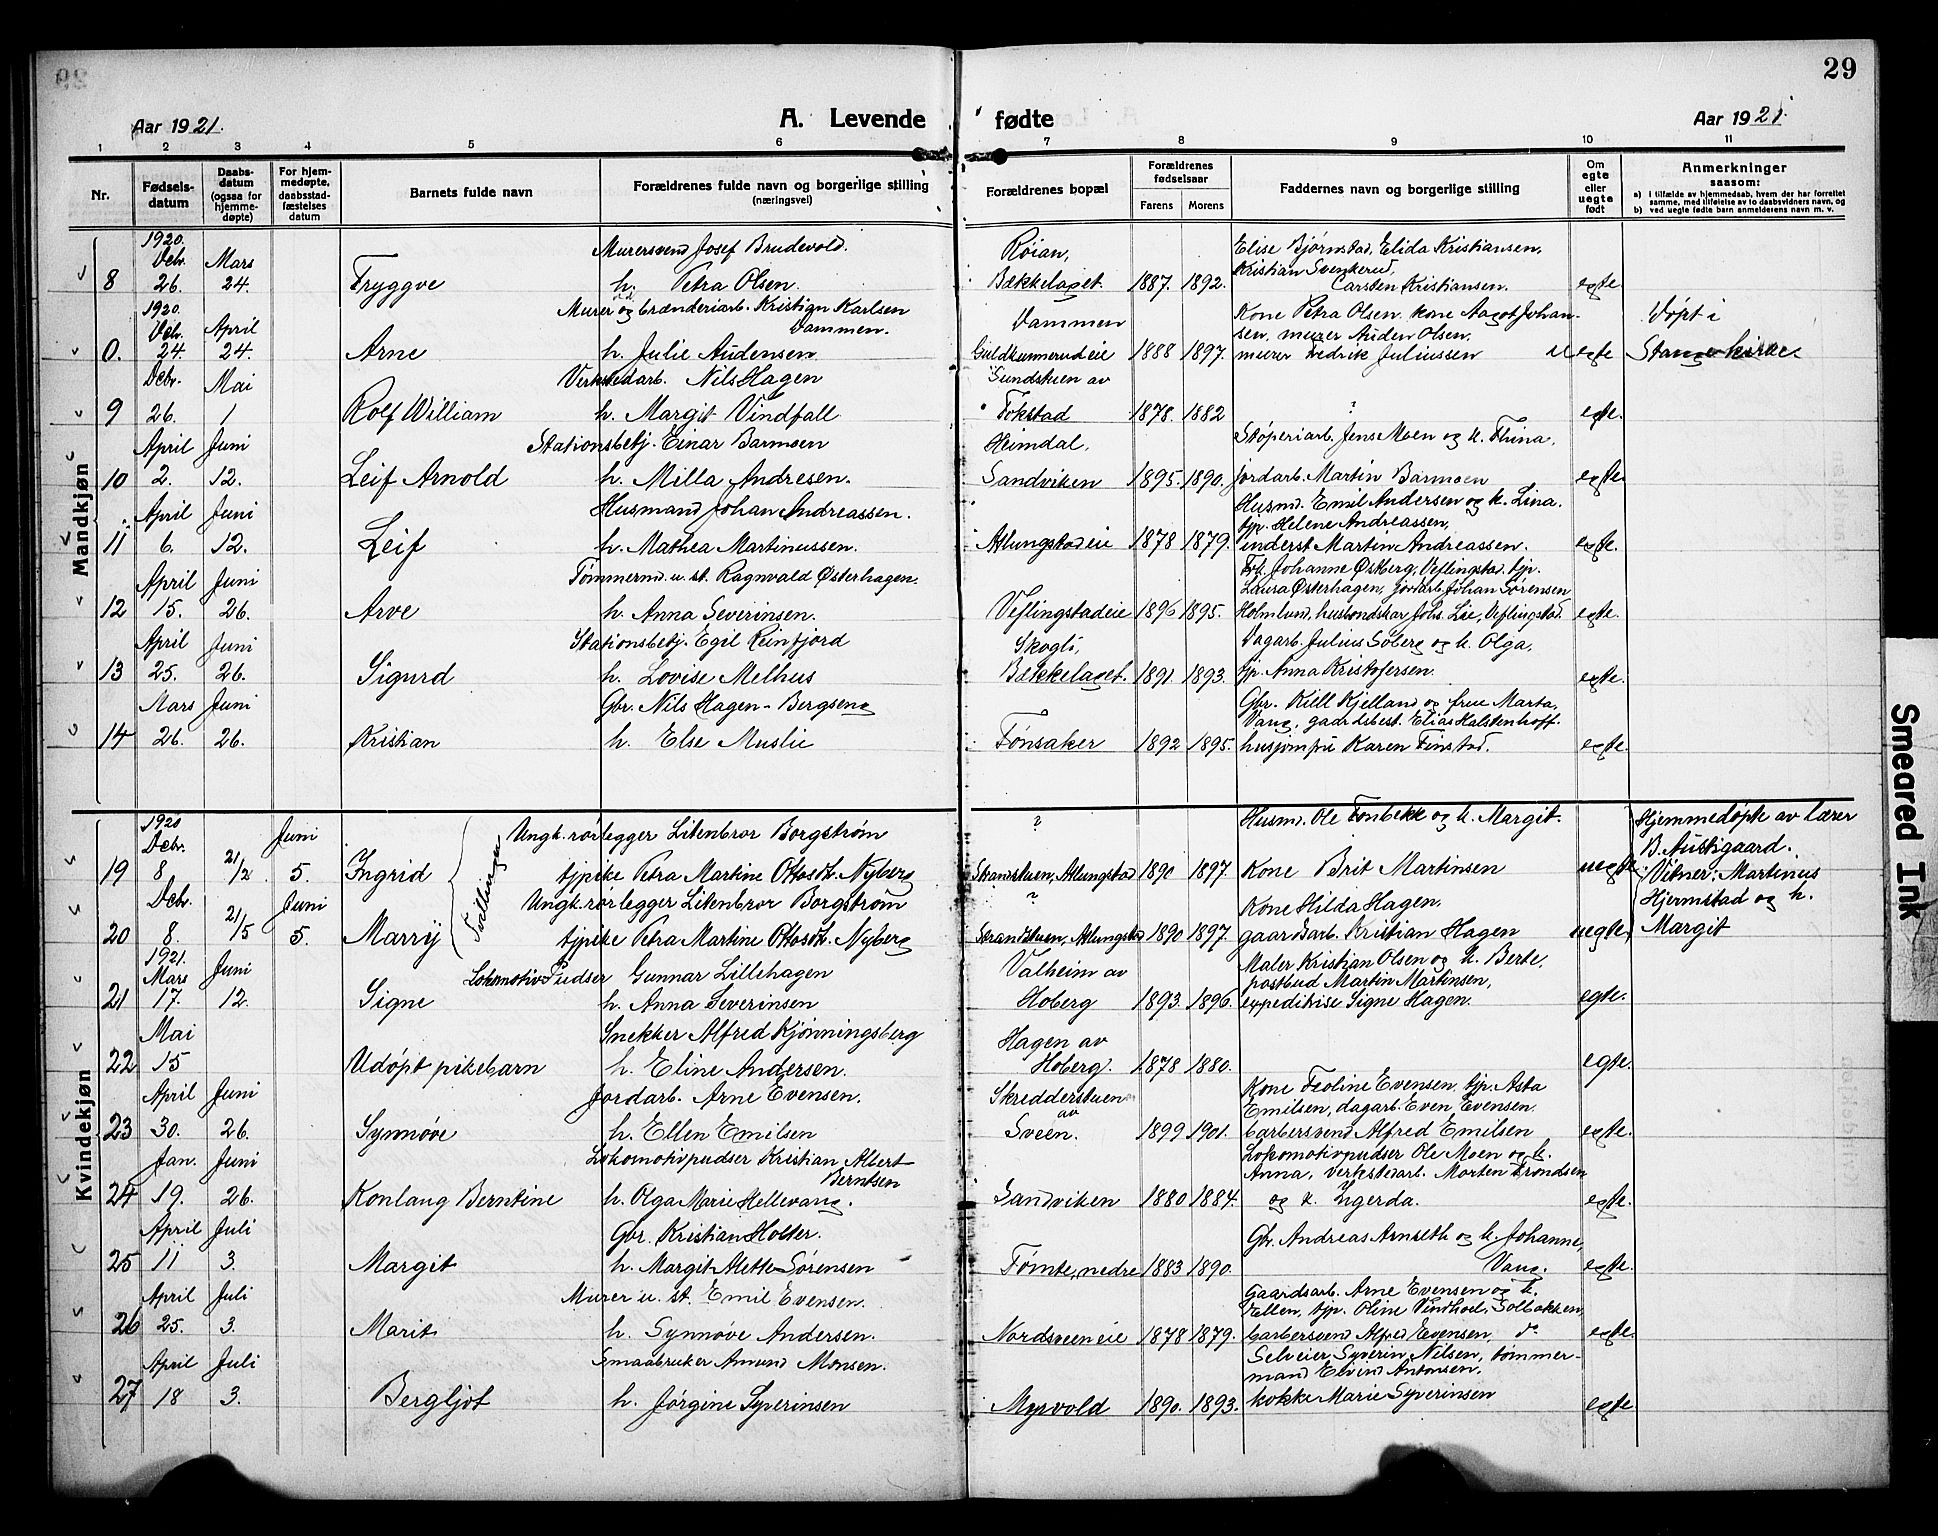 29
Aar 1921.
A. Levende fødte
Aar 1921.
1 2 3 4 5 6 7 8 9 10 11
Nr.
Fødsels-datum
Daabs-datum (ogsaa for hjemme-døpte)
For hjem-medøpte, daabsstad-fæstelses datum
Barnets fulde navn
Forældrenes fulde navn og borgerlige stilling (næringsvei)
Forældrenes bopæl
Forældrenes fødselsaar
Farens Morens
Faddernes navn og borgerlige stilling
Om egte eller uegte født
Anmerkninger saasom:
a) i tilfælde av hjemmedaab, hvem der har forrettet samme, med tilføielse av to daabsvidners navn, og
b) ved uegte fødte barn anmelderens navn m. v.
Mandkjøn
1920. Debr. Mars Murersvend Josef Brudevold. Røian, Elise Bjørnstad, Elida Kristiansen,
Kristian Svenkerud,
8 26. 24. Tryggve h. Petra Olsen. Bækkelaget. 1887. 1892. Carsten Kristiansen. egte
1920. Debr. April Murer og brænderiarb. Kristian Karlsen Dammen. Dammen Kone Petra Olsen, kone Aagot Johan-
sen, murer Auden Olsen, Døpt i
0. 24. 24. Arne h. Julie Audensen Guldkunnerudeie 1888 1897. murer Fredrik Juliussen uegte Stange kirke.
Debr. Mai Verkstedarb. Nils Hagen Sundstuen av
9 26. 1 Rolf William h. Margit Vindfall Tokstad 1878. 1882 ? egte.
April Juni Stationsbetj. Einar Barmoen Heimdal, Støperiarb. Jens Moen og h. Thina,
10 2. 12. Leif Arnold h. Milla Andresen. Sandviken 1895. 1890. jordarb. Martin Barmoen egte.
April Juni Husmand Johan Andreassen. Husmd. Emil Andersen og h. Lina.
tjp. Helene Andreassen,
11 6. 12. Leif h. Mathea Martinussen. Atlungstadeie 1878 1879. inderst Martin Andreassen. egte.
April Juni Tømmermd. u. st. Ragnvald Østerhagen. Frk. Johanne Østberg, Veflingstad. tjp.
Laura Østerhagen, jordarb. Johan Sørensen
12 15. 26. Arve h. Anna Severinsen. Veflingstadeie 1896 1895. Holmlund, husbondskar Johs. Lie, Veflingstad. egte.
April Juni Stationsbetj. Egil Reinfjord Skogli, Dagarb. Julius Soberg og h. Olga,
13 25. 26. Sigurd h. Lovise Melhus Bækkelaget. 1891 1893. tjp. Anna Kristofersen. egte.
Mars Juni Gbr. Nils Hagen-Bergseng Gbr. Kill Kjelland og frue Marta,
Vang, gaardsbest. Elias Halstenhoff
14 26. 26. Kristian h. Else Muslie Tønsaker 1892 1895. husjomfru Karen Finstad. egte.
Kvindekjøn
1920 Debr. Juni Ungk. rørlegger Litenbror Borgstrøm ? Husmd. Ole Tonbekk og h. Margit. Hjemmedøpte av lærer
B. Austigaard.
19 8 21/2 5. Ingrid Tvillinger tjpike Petra Martine Ottosdt. Nyberg Strandstuen, Atlungstad 1890 1897. Kone Brit Martinsen uegte Vitner: Martinus
Debr. Juni Ungk. rørlegger Litenbror Borgstrøm ? Kone Hilda Hagen, Hjermstad og h.
20 8. 21/5 5. Marry tjpike Petra Martine Ottosdt. Nyberg Strandstuen, Atlungstad 1890 1897. gaardarb. Kristian Hagen uegte Margit
1921. Mars Juni Lokomotiv-Pudser Gunnar Lillehagen Valheim av Maler Kristian Olsen og h. Berte,
postbud Martin Martinsen,
21 17. 12. Signe h. Anna Severinsen Hoberg 1893. 1896. expeditrise Signe Hagen. egte.
Mai Snekker Alfred Kjønningsberg Hagen av
22 15 Udøpt pikebarn h. Eline Andersen. Hoberg. 1878 1880. egte.
April Juni Jordarb. Arne Evensen. Skredderstuen av Kone Teoline Evensen, tjp. Asta
Emilsen, dagarb. Even Evensen.
23 30. 26. Synnøve h. Ellen Emilsen Sveen. 1899 1901. barbersvend Alfred Emilsen egte.
Jan. Juni Lokomotivpudser Kristian Albert Berntsen Lokomotivpudser Ole Moen og h.
Anna, Verkstedarb. Morten Trondsen
24 19. 26. Konlaug Berntine h. Olga Marie Hellevang. Sandviken 1880 1884. og h. Ingerda. egte.
April Juli Gbr. Kristian Holter. Gbr. Andreas Arnseth og h. Johanne,
25 11 3. Margit h. Margit Alette Sørensen Tømte, nedre 1883 1890. Vang. egte.
April Juli Murer u. st. Emil Evensen. Gaardsarb. Arne Evensen og h.
Ellen, tjp. Oline Vindhol, Solbakken,
26 25. 3. Marit h. Synnøve Andersen. Nordsveeneie 1878 1879. barbersvend Alfred Evensen, do egte.
April Juli Smaabruker Amund Monsen. Selveier Syverin Nilsen, tømmer-
mand Elvind Antonsen.
27 18 3. Bergljot h. Jørgine Syverinsen Myrvold 1890. 1893. kokke Marie Syverinsen egte.
Smeared Ink